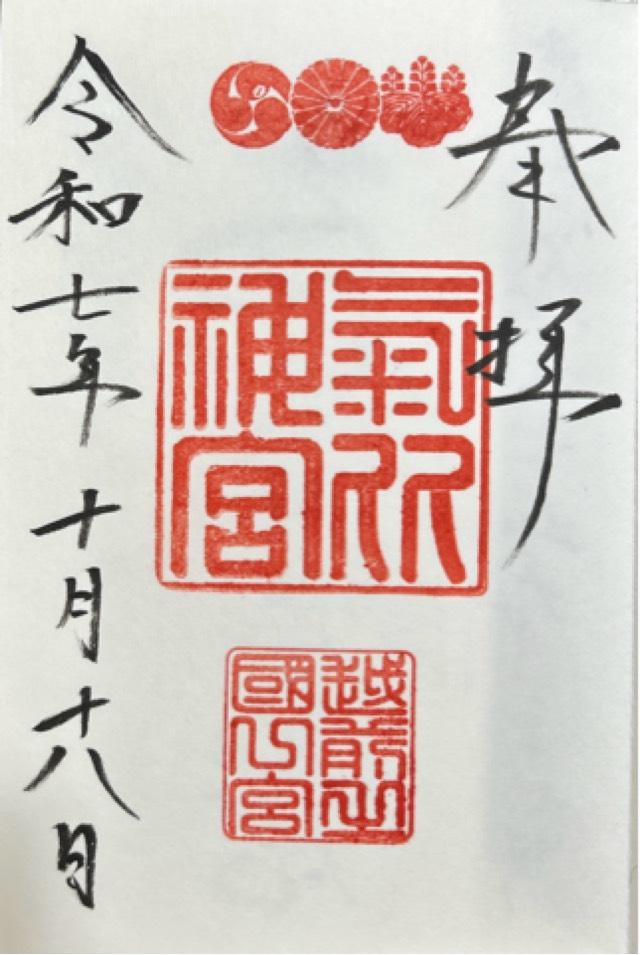 奉拝
氣比
神宮
越前之
國宮
令和七年十月十八日